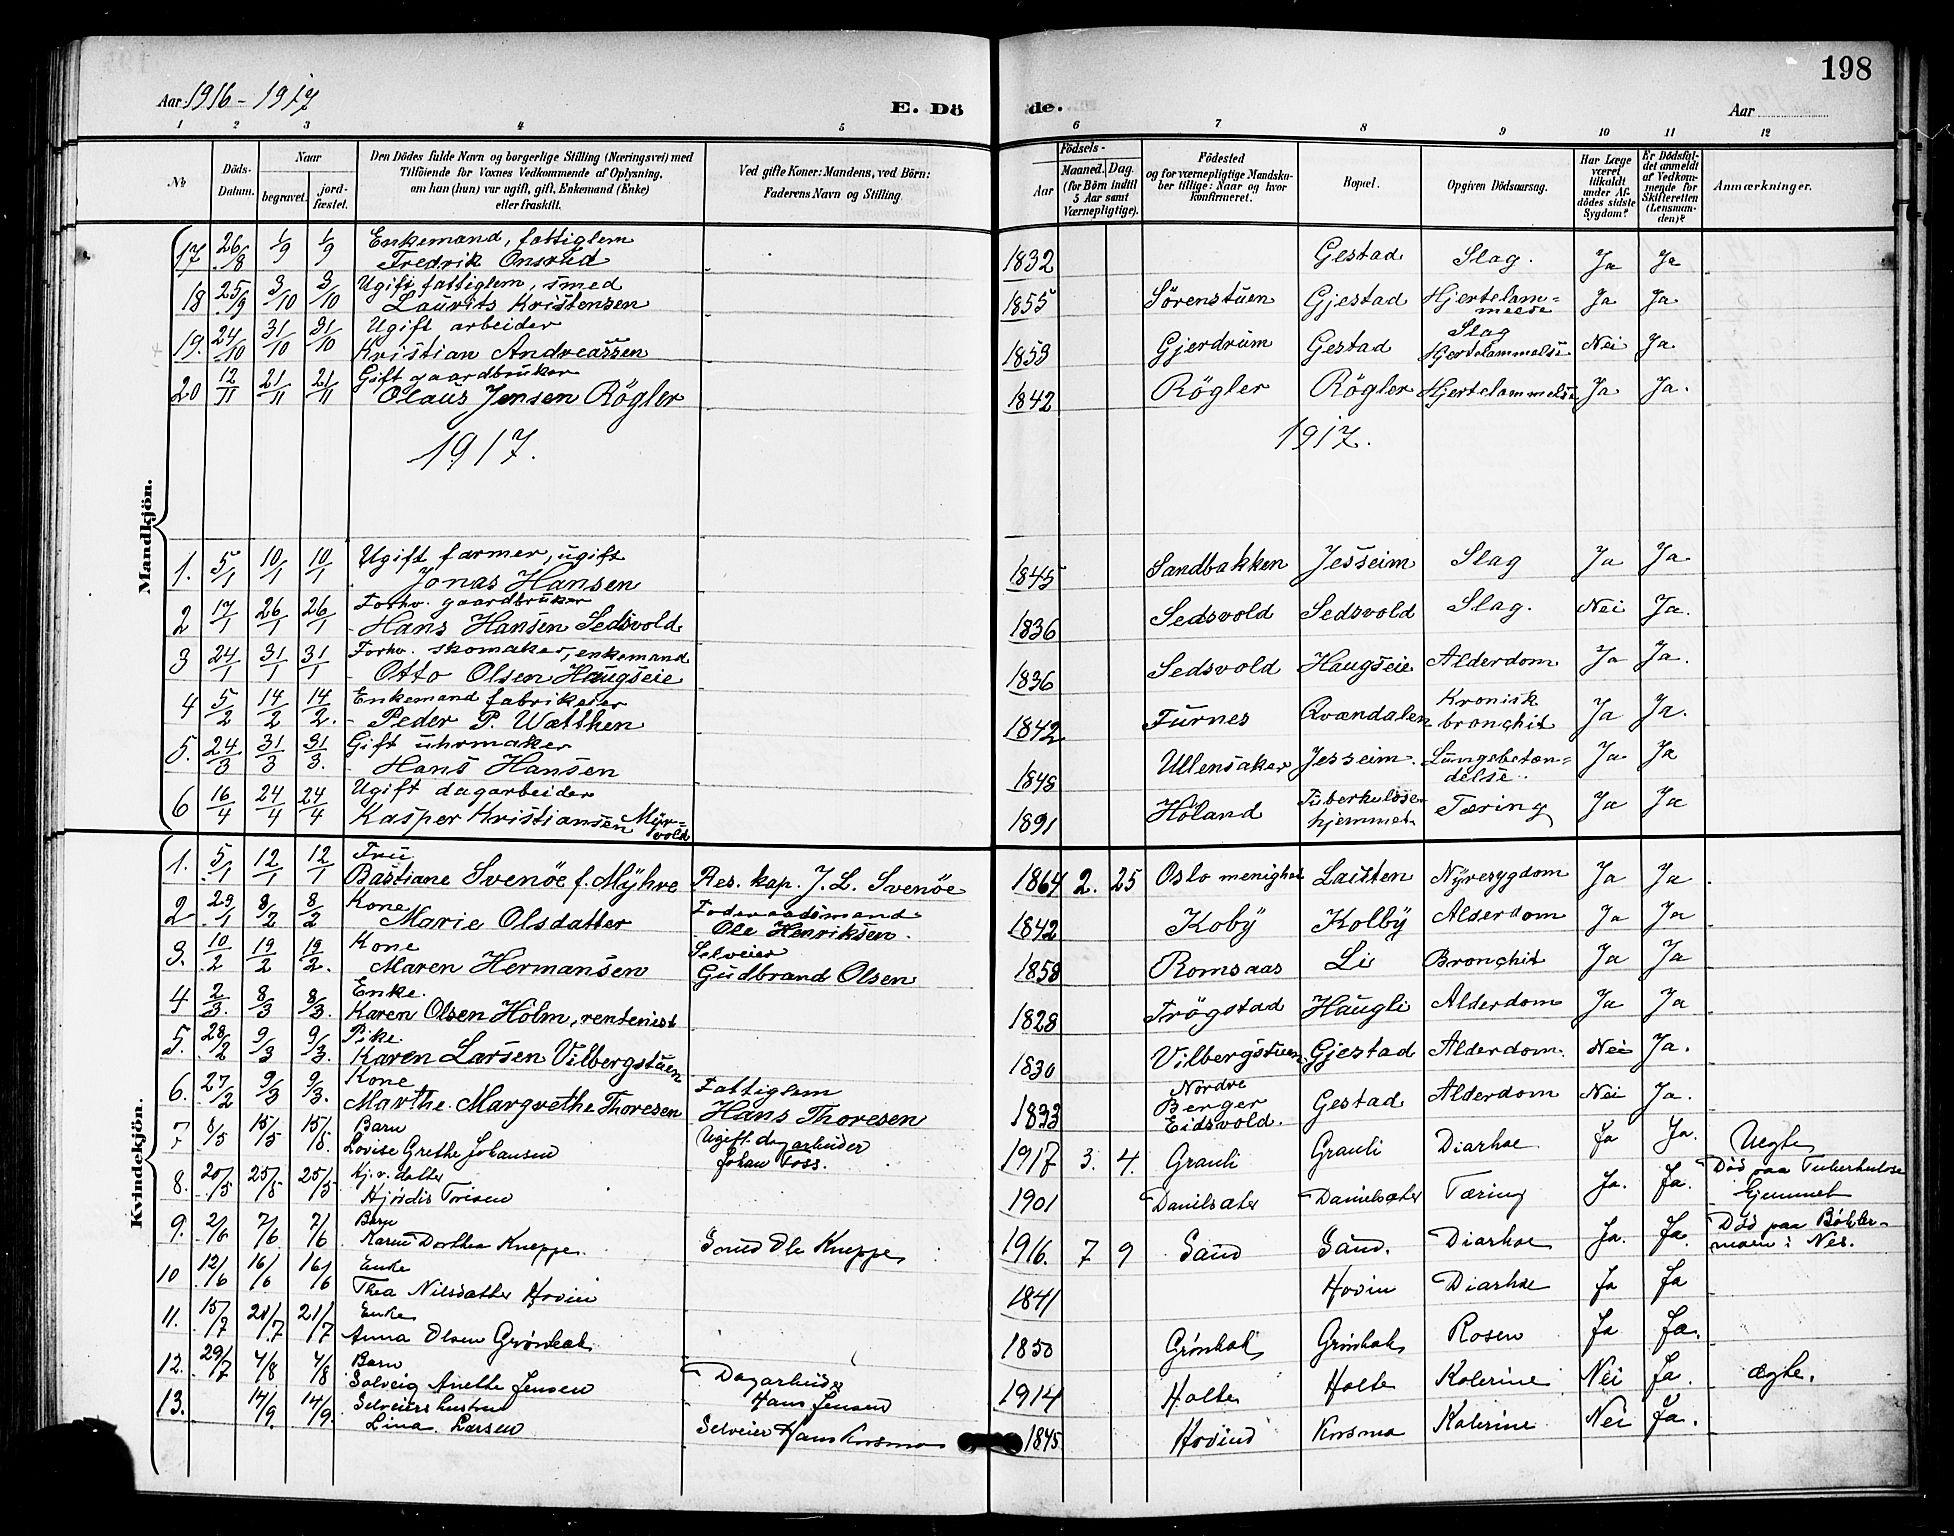 198
Aar 1916-1917
E. Dö
de.
Aar
1 2 3 4 5 6 7 8 9 10 11 12
No
Döds-Datum.
Naar
begravet.
jord-fæstet.
Den Dödes fulde Navn og borgerlige Stilling (Næringsvei) med
Tilföiende for Voxnes Vedkommende af Oplysning,
om han (hun) var ugift, gift, Enkemand (Enke)
eller fraskilt.
Ved gifte Koner: Mandens, ved Börn:
Faderens Navn og Stilling
Födsels-
Aar
Maaned. Dag.
(for Börn indtil
5 Aar samt
Værnepligtige).
Födested
og for værnepligtige Mandska-
ber tillige: Naar og hvor
konfirmeret.
Bopæl.
Opgiven Dödsaarsag.
Har Læge
været
tilkaldt
under Af-
dödes sidste
Sygdom?
Er Dödsfal-
det anmeldt
af Vedkom-
mende for
Skifteretten
(Lensman-
den)?
Anmærkninger.
Mandkjön.
17 26/8 1/9 1/9 Enkemand, fattiglem
Fredrik Onsrud 1832 Gestad Slag. Ja Ja
18 25/9 3/10 3/10 Ugift fattiglem, smed
Laurits Kristensen 1855 Sörenstuen Gjestad Hjertelam=
melse Ja Ja
19. 24/10 31/10 31/10 Ugift arbeider
Kristian Andreassen 1853 Gjerdrum Gestad Slag
Hjertelammelse Nei Ja
20 12/11 21/11 21/11 Gift gaardbruker
Olaus Jensen Rögler 1842 Rögler Rögler Hjertelammelse Ja Ja.
1917. 1917.
1. 5/1 10/1 10/1 Ugift farmer, ugift
Jonas Hansen 1845 Sandbakken Jesseim Slag Ja Ja
2 17/1 26/1 26/1 Forhv. gaardbruker
Hans Hansen Sedsvold 1836 Sedsvold Sedsvold Slag. Nei Ja.
3 24/1 31/1 31/1 Forhv. skomaker, enkemand
Otto Olsen Haugseie 1836 Sedsvold Haugseie Alderdom Ja Ja.
4 5/2 14/2 14/2. Enkemand fabrikeier
Peder P. Wætthen 1842 Furnes Qvændalen Kronisk
bronchit Ja Ja.
5. 24/3 31/3 31/3. Gift uhrmaker
Hans Hansen 1848 Ullensaker Jesseim. Lungebetæn=
delse. Ja Ja
6 16/4 24/4 24/4 Ugift dagarbeider
Kasper Kristiansen Myr=
vold 1891 Höland Tuberkulose-
hjemmet Tæring Ja Ja
Kvindekjön.
1. 5/1 12/1 12/1 Fru
Bastiane Svenöe f. Myhre Res. kap. J. L. Svenöe 1864 2. 25 Oslo menighet Laisten Nyresygdom Ja Ja
2 29/1 8/2 8/2 Kone
Marie Olsdatter Foderaadsmand
Ole Henriksen. 1842 Koby Kolby Alderdom Ja Ja
3. 10/2 19/2 19/2. Kone
Maren Hermansen Selveier
Gudbrand Olsen 1858 Romsaas Li Bronchit Ja Ja
4 2/3. 8/3 8/3. Enke.
Karen Olsen Holm, rentenist 1828 Trögstad Haugli Alderdom Ja Ja
5. 28/2 9/3 9/3. Pike.
Karen Larsen Vilbergstuen 1830 Vilbergstuen Gjestad Alderdom. Nei Ja.
6. 27/2 9/3 9/3. Kone
Marthe Margrethe Thoresen Fattiglem
Hans Thoresen 1833 Nordre
Berger
Eidsvold. Gestad Alderdom Nei Ja.
7. 8/5 15/5 15/5 Barn
Lovise Grethe Johansen Ugift dagarbeider
Johan Foss. 1917 3. 4. Grauli Grauli Diarhoe Ja Ja. Uegte
8. 20/5 25/5 25/5 Gj.v. datter
Hjördis 1901 Danilsæter Danielsæter Tæring Ja. Ja. Död paa Tuberkulose
hjemmet
9. 2/6 7/6 7/6 Barn
Karen Dorthea Kneppe. Smed Ole Kneppe 1916. 7 9 Sand Sand. Diarhoe Ja. Ja. Död paa
i Nes.
10 12/6 16/6 16/6 Enke
Thea Nilsdatter Hovin 1841 Hovin Diarhoe Ja Ja
11. 15/7 21/7 21/7 Enke
Anna Olsen Grönbak 1850 Grönbak Grönbak Rosen Ja Ja.
12. 29/7 4/8 4/8 Barn
Solveig Anethe Jensen Dagarbeider
Hans Jensen 1914 Holte Holte Kolerine Nei Ja. Ægte.
13. 14/9. 14/9. Selveiers hustru
Lina Larsen Selveier Hans Korsmo 1845 Hovind Korsmo Kolerine Nei Ja.